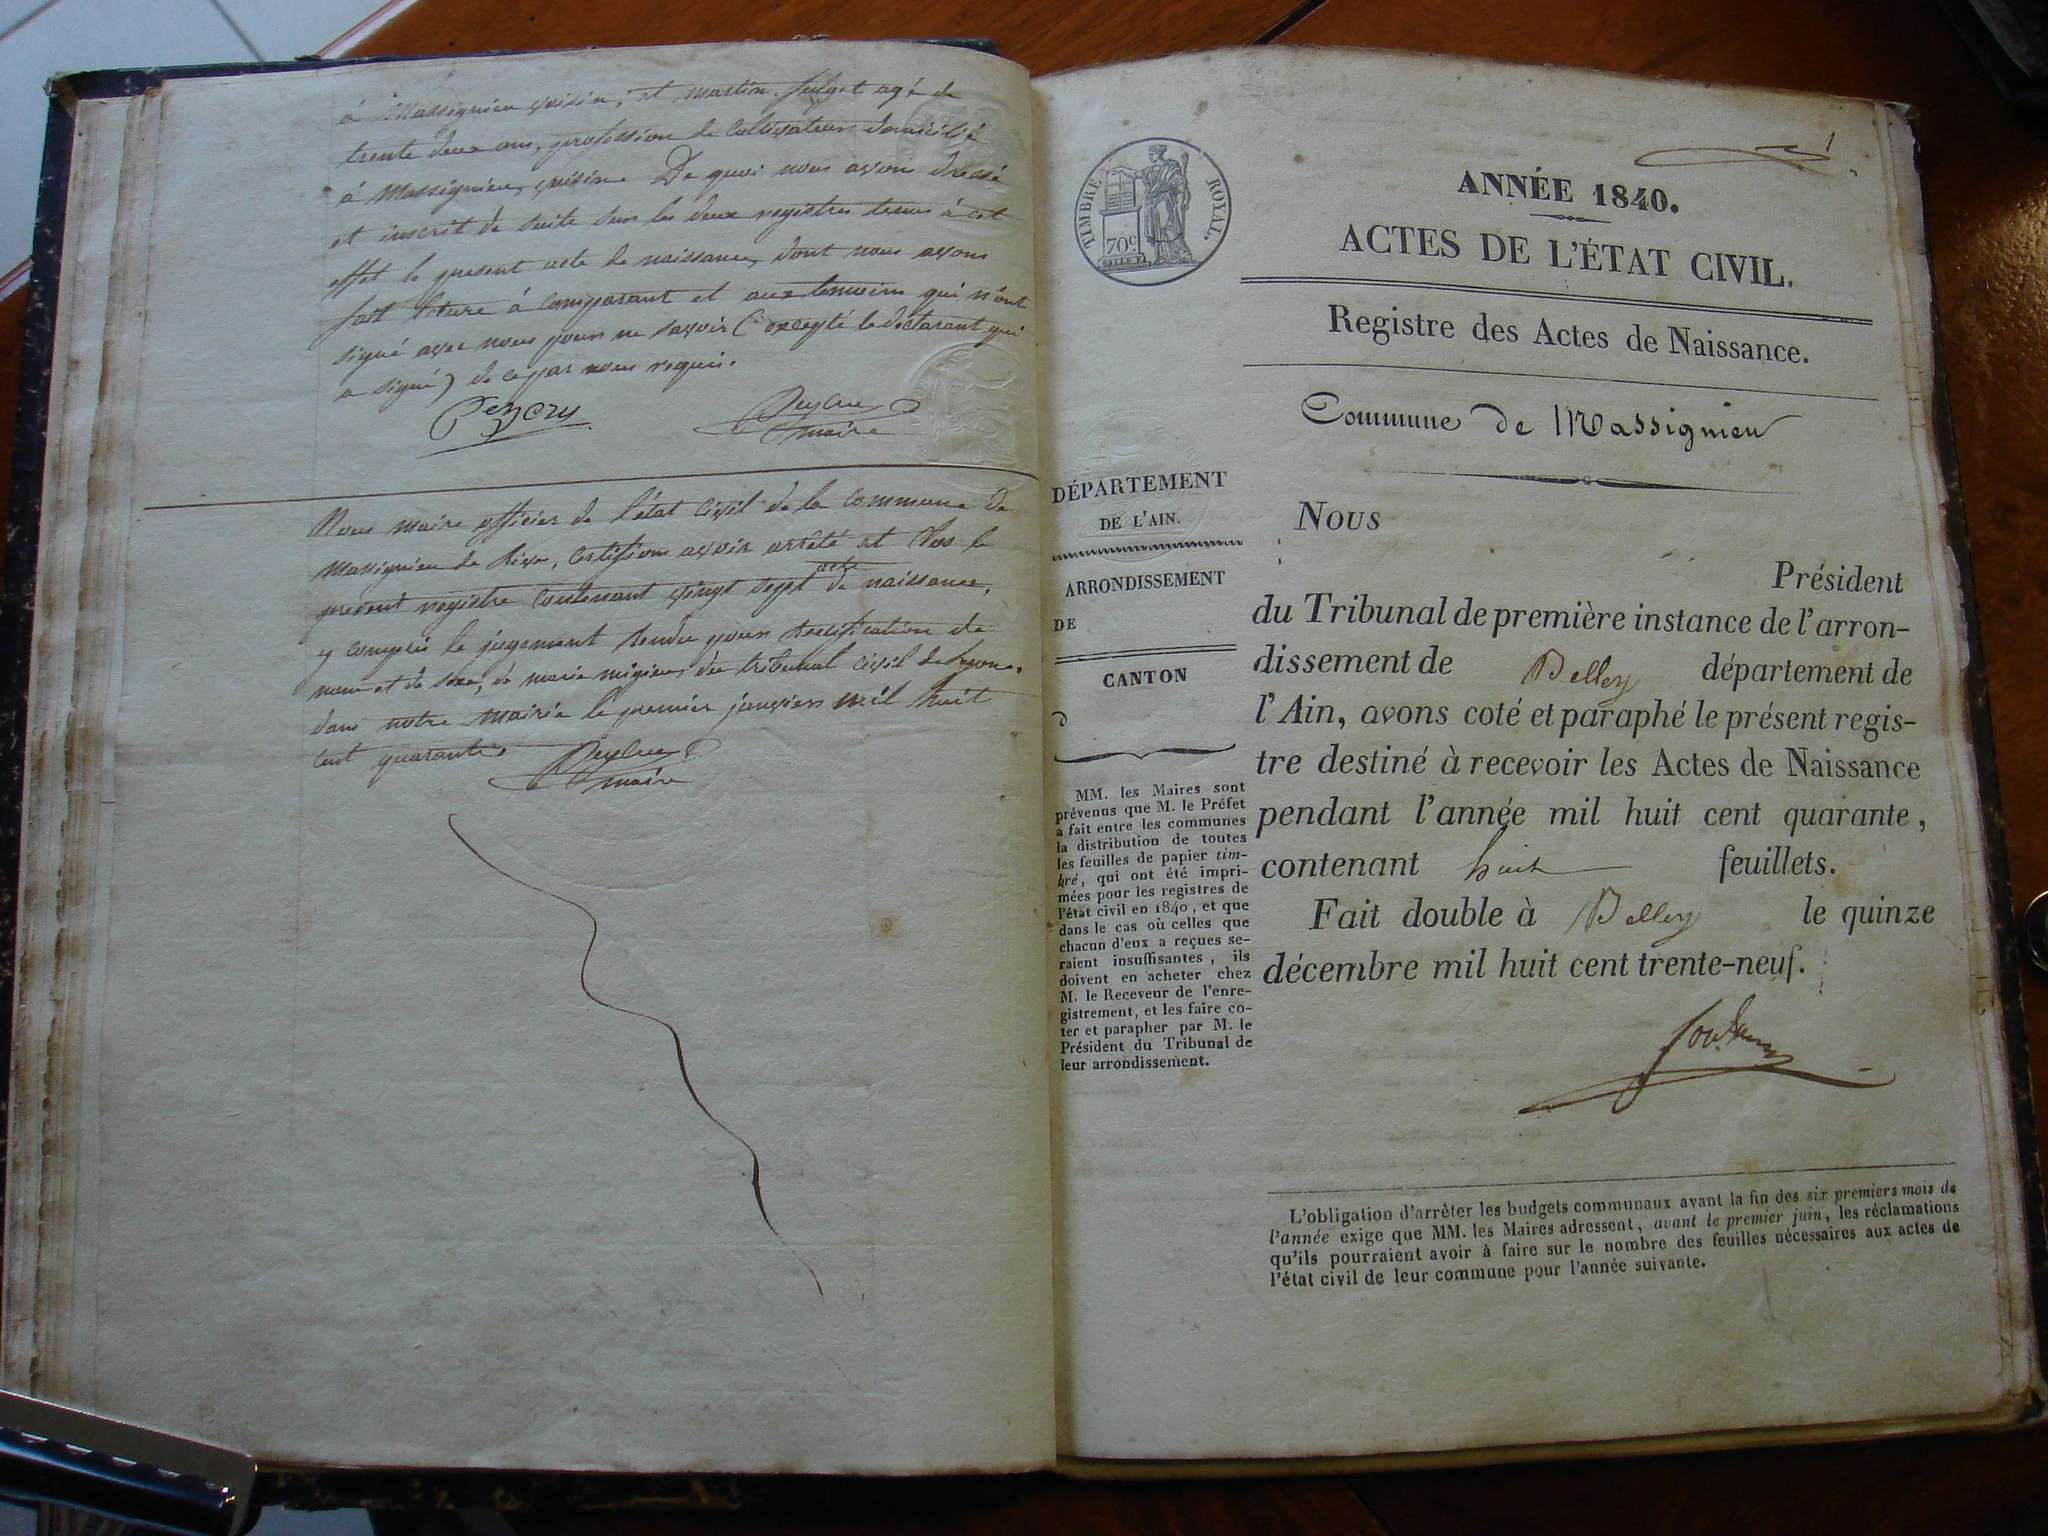 à Massignieu voisin, et martin fulget agé de
trente deux ans, profession de cultivateur domicilié
à Massignieu, voisin. De quoi nous avons dressé
et inscrit de suite sur les deux registres tenus à cet
effet le present acte de naissance, dont nous avons
fait lecture à comparant et aux temoins qui n'ont
signé avec nous pour ne savoir (excepté le déclarant qui
a signé) de ce par nous requis.
maire
Nous maire officier de l'état civil de la commune de
Massignieu de Rive, certifions avoir arrêté et clos le
present registre contenant vingt sept acte de naissance,
y compris le jugement rendu pour rectification de
nom et de sexe, de marie migieu, du tribunal civil de
dans notre mairie le premier janvier mil huit
cent quarante.
maire
1
TIMBRE ROYAL.
70c
ANNÉE 1840.
ACTES DE L'ÉTAT CIVIL.
Registre des Actes de Naissance.
Commune de Massignieu
DÉPARTEMENT
DE L'AIN.
ARRONDISSEMENT
DE
CANTON
d
MM. les Maires sont
prévenus que M. le Préfet
a fait entre les communes
la distribution de toutes
les feuilles de papier tim-
bré, qui ont été impri-
mées pour les registres de
l'état civil en 1840, et que
dans le cas où celles que
chacun d'eux a reçues se-
raient insuffisantes, ils
doivent en acheter chez
M. le Receveur de l'enre-
gistrement, et les faire co-
ter et parapher par M. le
Président du Tribunal de
leur arrondissement.
Nous
Président
du Tribunal de première instance de l'arron-
dissement de Belley département de
l'Ain, avons coté et paraphé le présent regis-
tre destiné à recevoir les Actes de Naissance
pendant l'année mil huit cent quarante,
contenant huit feuillets.
Fait double à Belley le quinze
décembre mil huit cent trente-neuf.
L'obligation d'arrêter les budgets communaux avant la fin des six premiers mois de
l'année exige que MM. les Maires adressent, avant le premier juin, les réclamations
qu'ils pourraient avoir à faire sur le nombre des feuilles nécessaires aux actes de
l'état civil de leur commune pour l'année suivante.